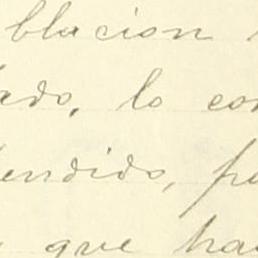 blacion
ado, lo con
endido, pe
que ha